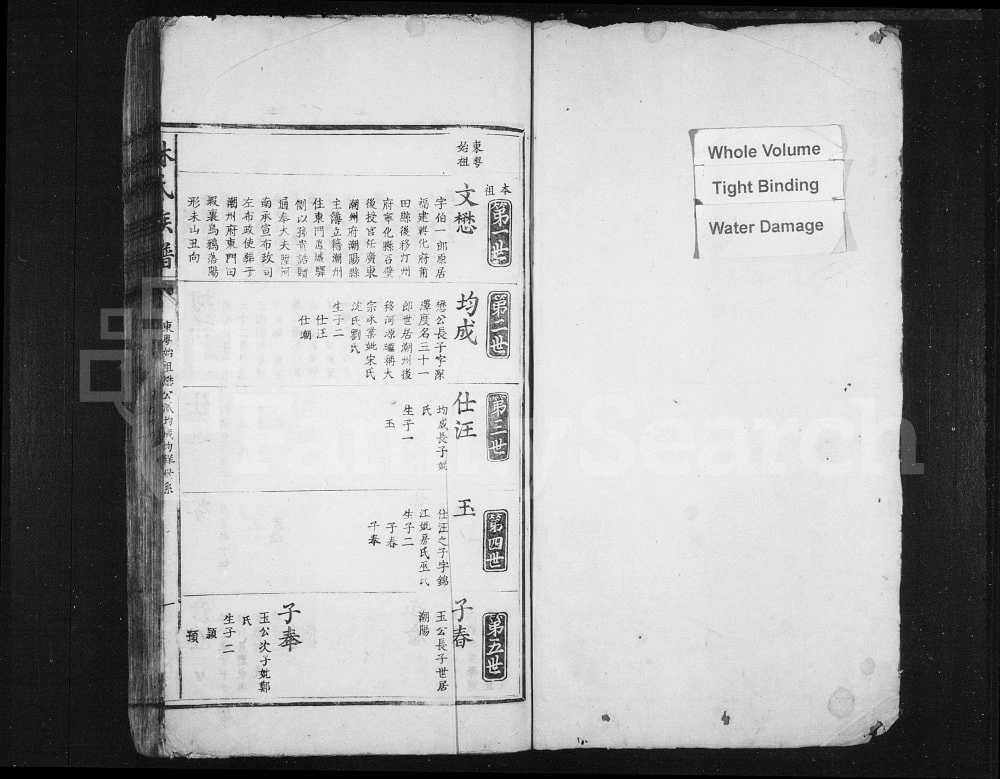 東粤
始祖
本
祖
第一世
文懋
字伯一郎原居
福建興化府莆
田縣後移汀州
府寧化縣石壁
後授官任廣東
潮州府潮陽縣
主簿立籍潮州
住東門鳳城驛
側以孫貴誥贈
通奉大夫陞河
南承宣布政司
左布政使葬于
潮州府東門田
蝦裏烏鴉落陽
形未山丑向
第二世
均成
懋公長子字深
澤度名三十一
郎世居潮州後
移河源編稱大
宗承業妣宋氏
沈氏劉氏
生子二
仕汪
仕潮
第三世
仕汪
均成長子妣
氏
生子一
玉
第四世
玉
仕汪之子字錦
江妣房氏巫氏
生子二
子春
子奉
第五世
子春
玉公長子世居
潮陽
子奉
玉公次子妣鄭
氏
生子二
穎
林氏族譜
東粤始祖懋公派均成均祥世系
一
Whole Volume
Tight Binding
Water Damage
FamilySearch